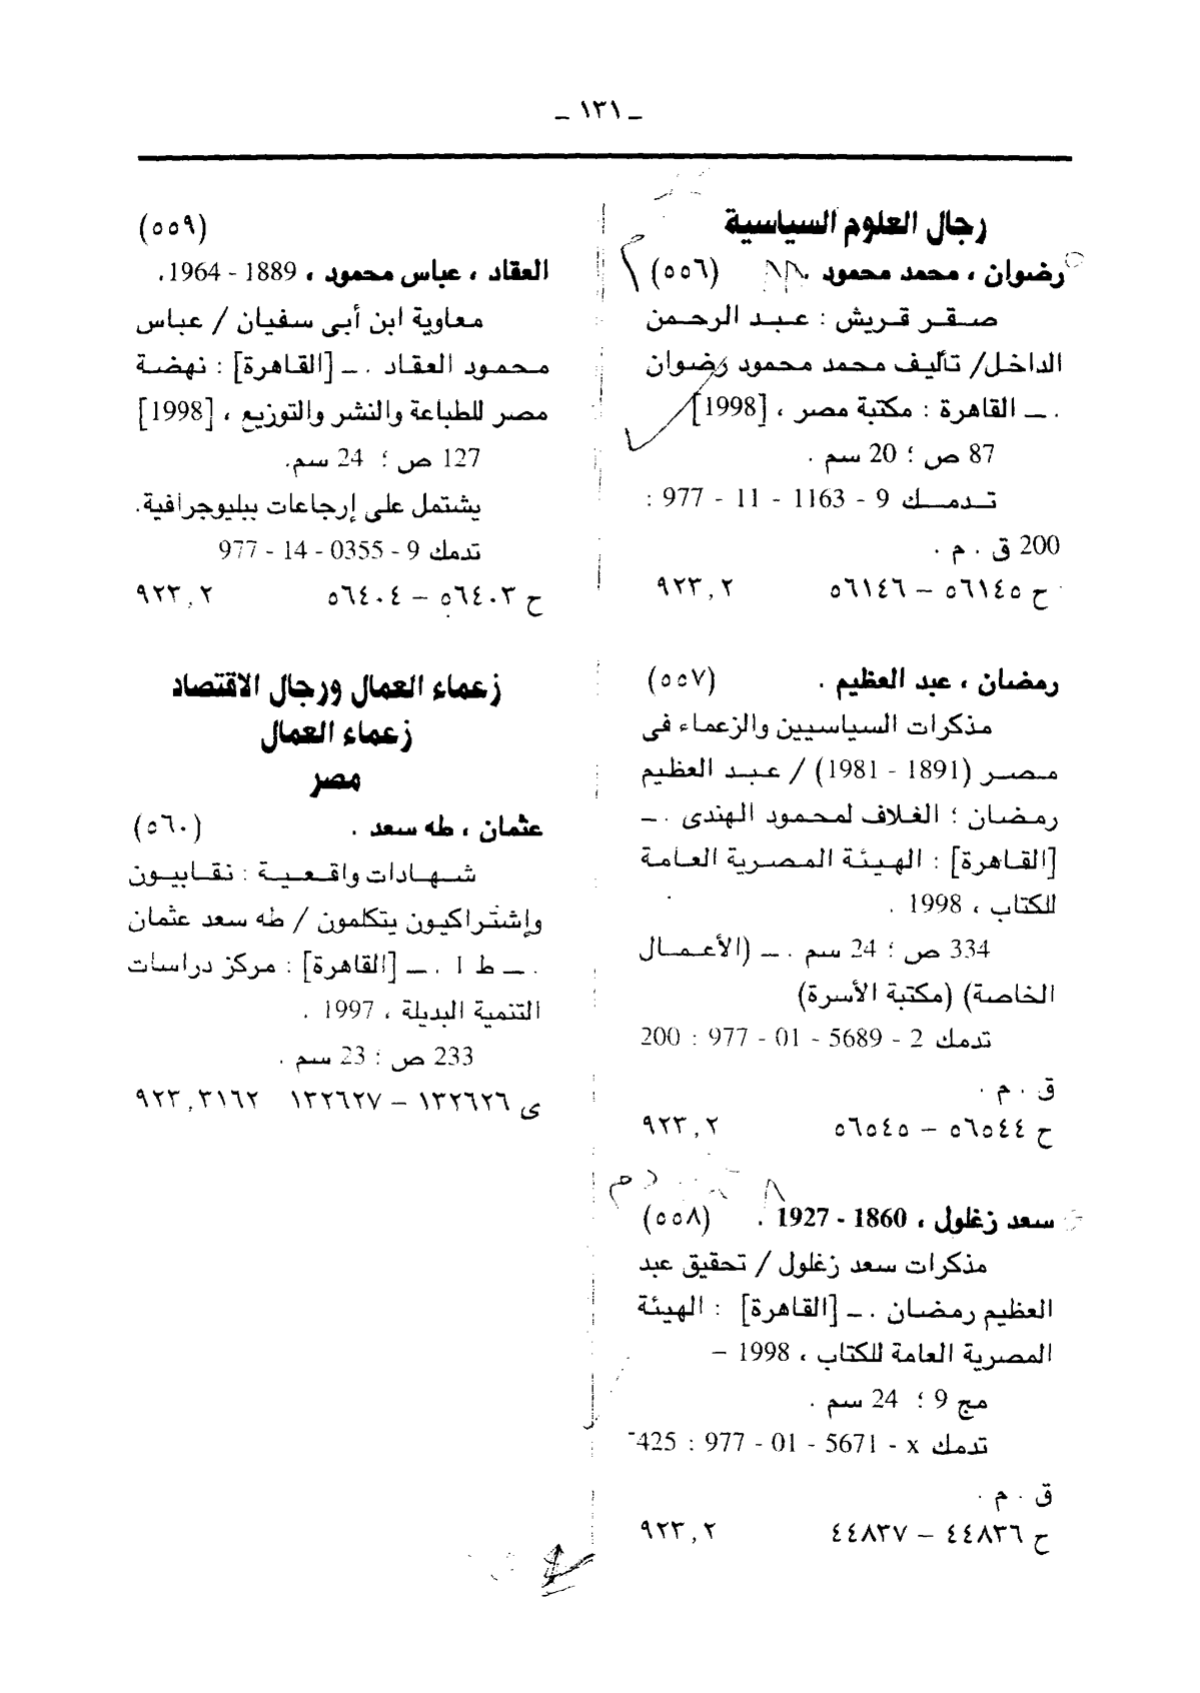 ـ ١٣١ ـ
رجال العلوم السياسية
رضوان ، محمد محمود . (٥٥٦)
صقر قريش : عبد الرحمن
الداخل/ تأليف محمد محمود رضوان
. ـ القاهرة : مكتبة مصر ، [1998]
87 ص ؛ 20 سم .
تدمك 9 - 1163 - 11 - 977 :
200 ق . م .
ح ٥٦١٤٥ – ٥٦١٤٦ ٩٢٣,٢
رمضان ، عبد العظيم . (٥٥٧)
مذكرات السياسيين والزعماء فى
مصر (1891 - 1981) / عبد العظيم
رمضان ؛ الغلاف لمحمود الهندى . ـ
[القاهرة] : الهيئة المصرية العامة
للكتاب ، 1998 .
334 ص ؛ 24 سم . ـ (الأعمال
الخاصة) (مكتبة الأسرة)
تدمك 2 - 5689 - 01 - 977 : 200
ق . م .
ح ٥٦٥٤٤ – ٥٦٥٤٥ ٩٢٣,٢
سعد زغلول ، 1860 - 1927 . (٥٥٨)
مذكرات سعد زغلول / تحقيق عبد
العظيم رمضان . ـ [القاهرة] : الهيئة
المصرية العامة للكتاب ، 1998 –
مج 9 ؛ 24 سم .
تدمك x - 5671 - 01 - 977 : 425
ق . م .
ح ٤٤٨٣٦ – ٤٤٨٣٧ ٩٢٣,٢
(٥٥٩)
العقاد ، عباس محمود ، 1889 - 1964.
معاوية ابن أبى سفيان / عباس
محمود العقاد . ـ [القاهرة] : نهضة
مصر للطباعة والنشر والتوزيع ، [1998]
127 ص ؛ 24 سم.
يشتمل على إرجاعات ببليوجرافية.
تدمك 9 - 0355 - 14 - 977
ح ٥٦٤٠٣ – ٥٦٤٠٤ ٩٢٣,٢
زعماء العمال ورجال الاقتصاد
زعماء العمال
مصر
عثمان ، طه سعد . (٥٦٠)
شهادات واقعية : نقابيون
وإشتراكيون يتكلمون / طه سعد عثمان
. ـ ط ١ . ـ [القاهرة] : مركز دراسات
التنمية البديلة ، 1997 .
233 ص ؛ 23 سم .
ى ١٣٢٦٢٦ – ١٣٢٦٢٧ ٩٢٣,٣١٦٢